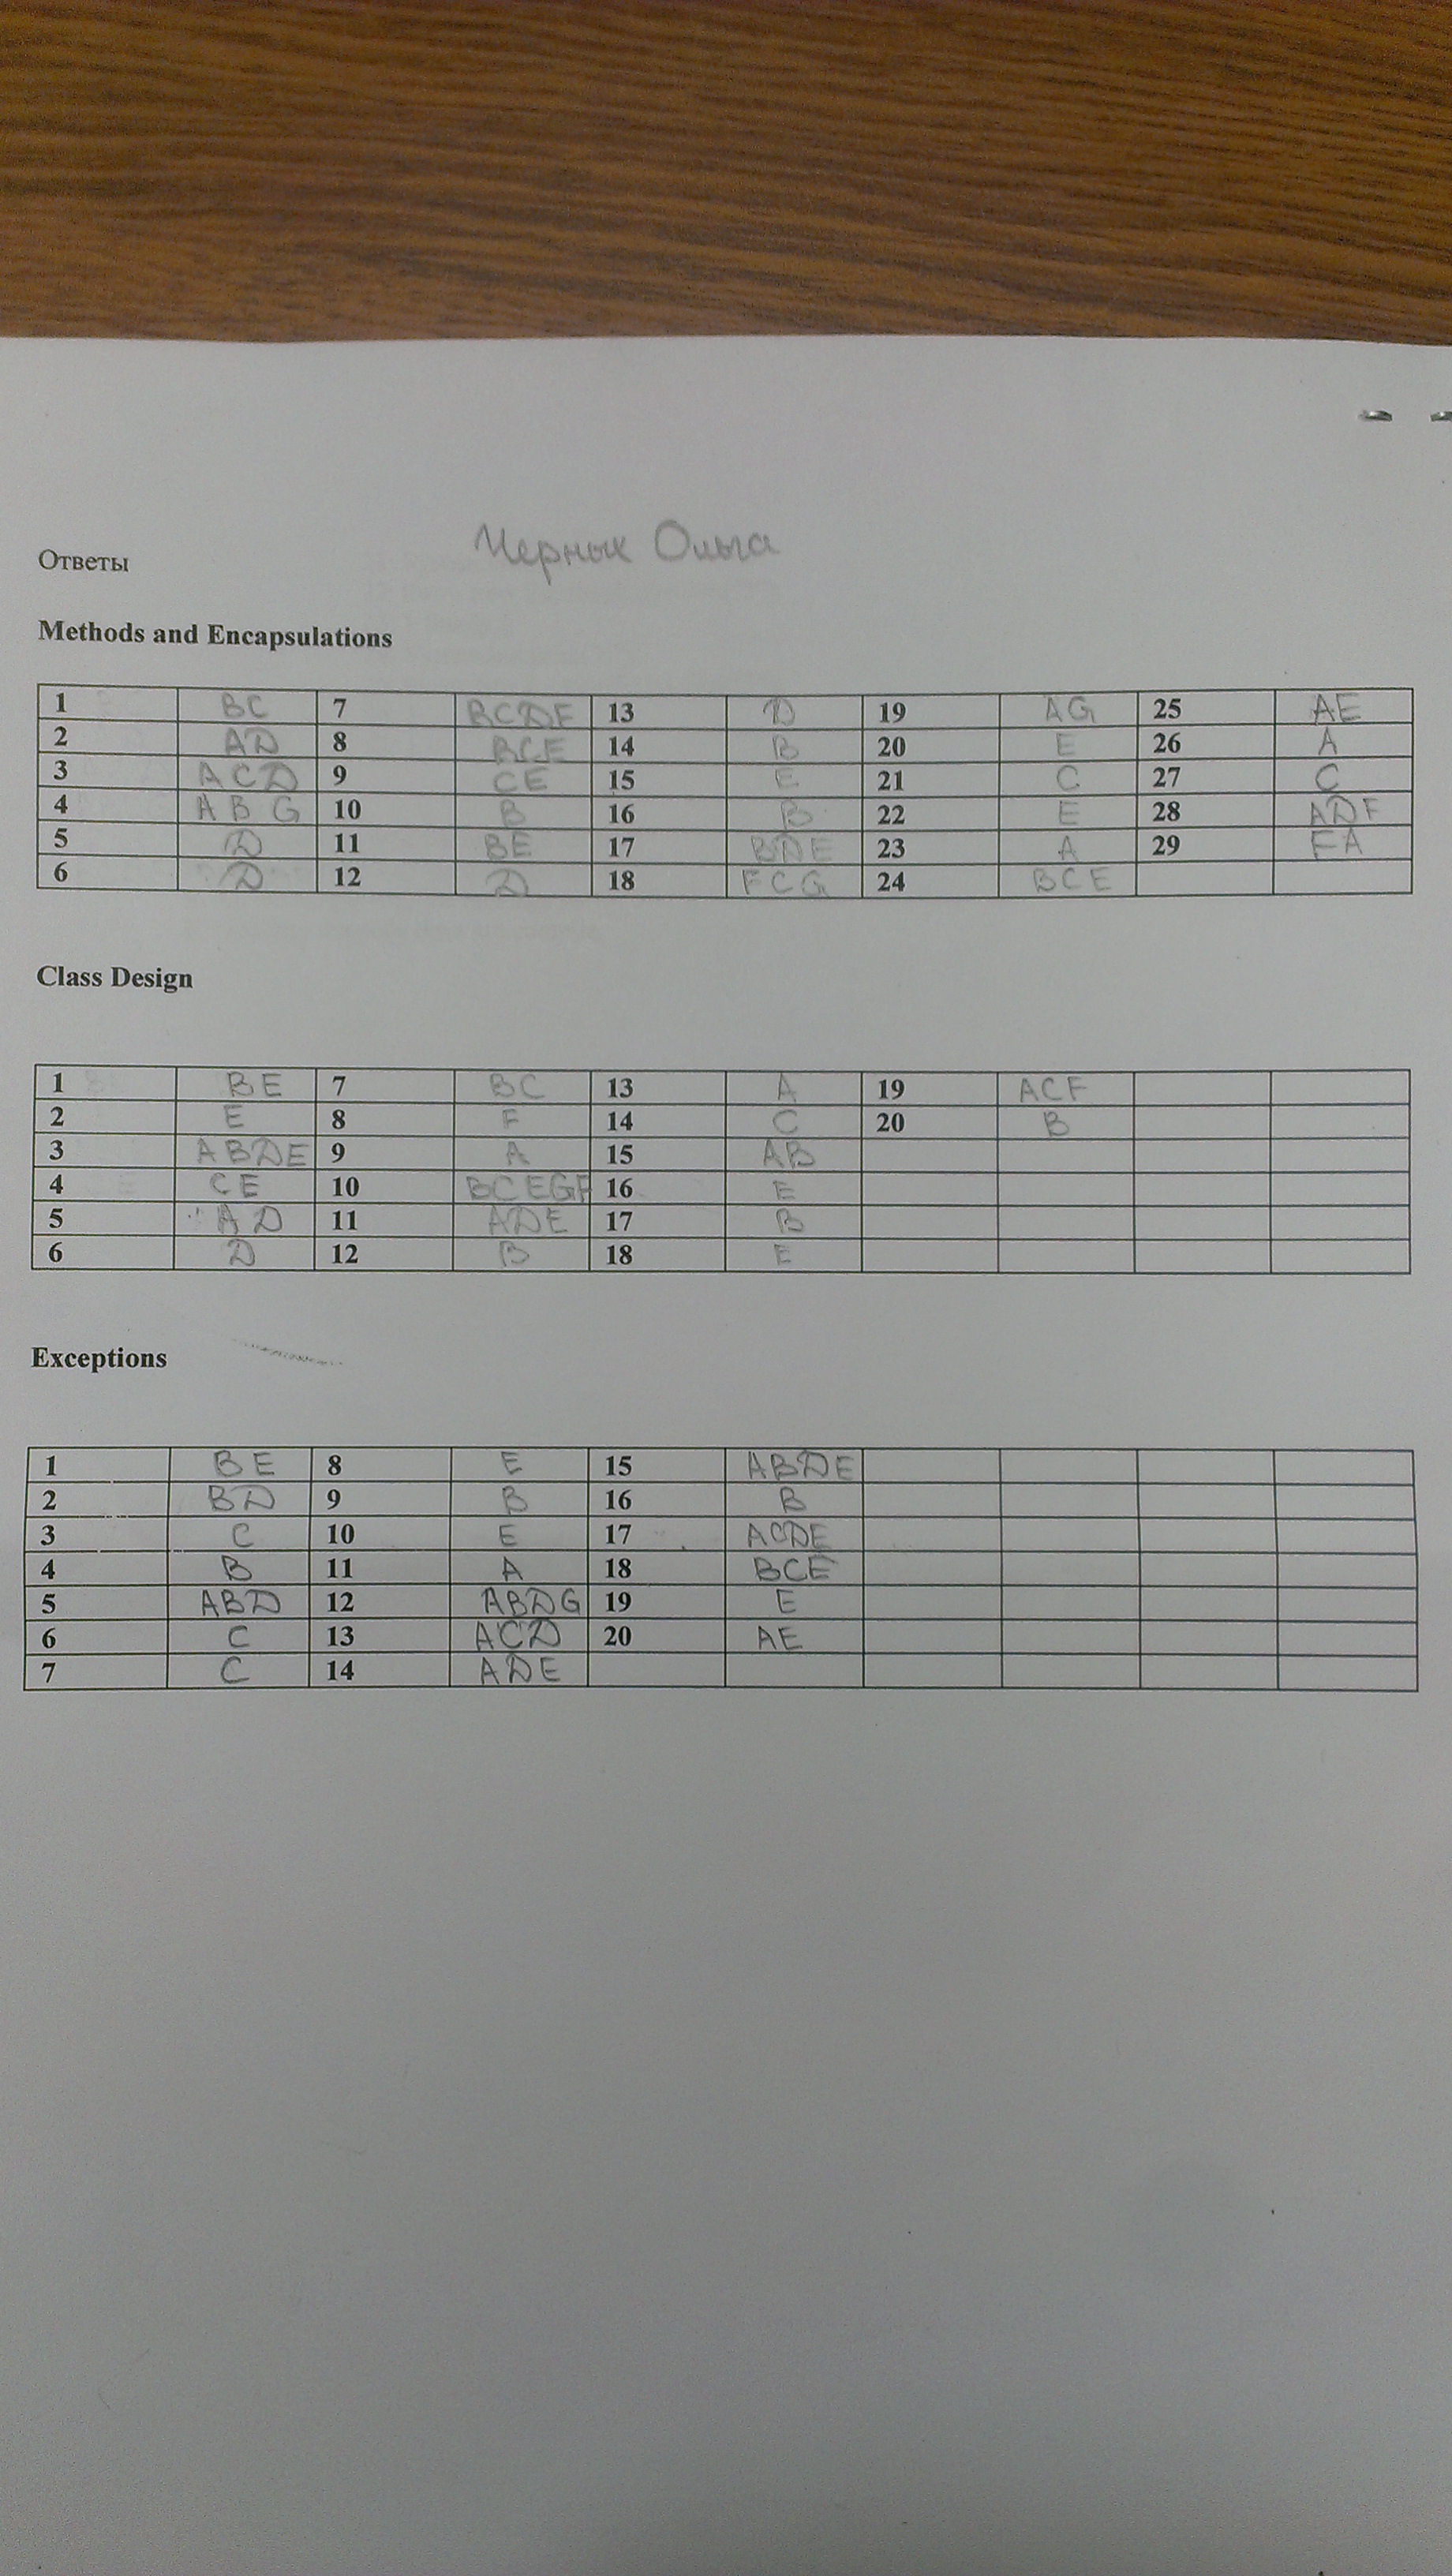 Ответы Черных Ольга
Methods and Encapsulations
1 BC 7 BCDE 13 D 19 AG 25 AE
2 AD 8 BCE 14 B 20 E 26 A
3 ACD 9 CE 15 E 21 C 27 C
4 ABG 10 B 16 B 22 E 28 ADF
5 D 11 BE 17 BDE 23 A 29 FA
6 D 12 D 18 FCG 24 BCE
Class Design
1 BE 7 BC 13 A 19 ACF
2 E 8 F 14 C 20 B
3 ABDE 9 A 15 AB
4 CE 10 BCEGF 16 E
5 AD 11 ADE 17 B
6 D 12 B 18 E
Exceptions
1 BE 8 E 15 ABDE
2 BD 9 B 16 B
3 C 10 E 17 ACDE
4 B 11 A 18 BCE
5 ABD 12 ABDG 19 E
6 C 13 ACD 20 AE
7 C 14 ADE